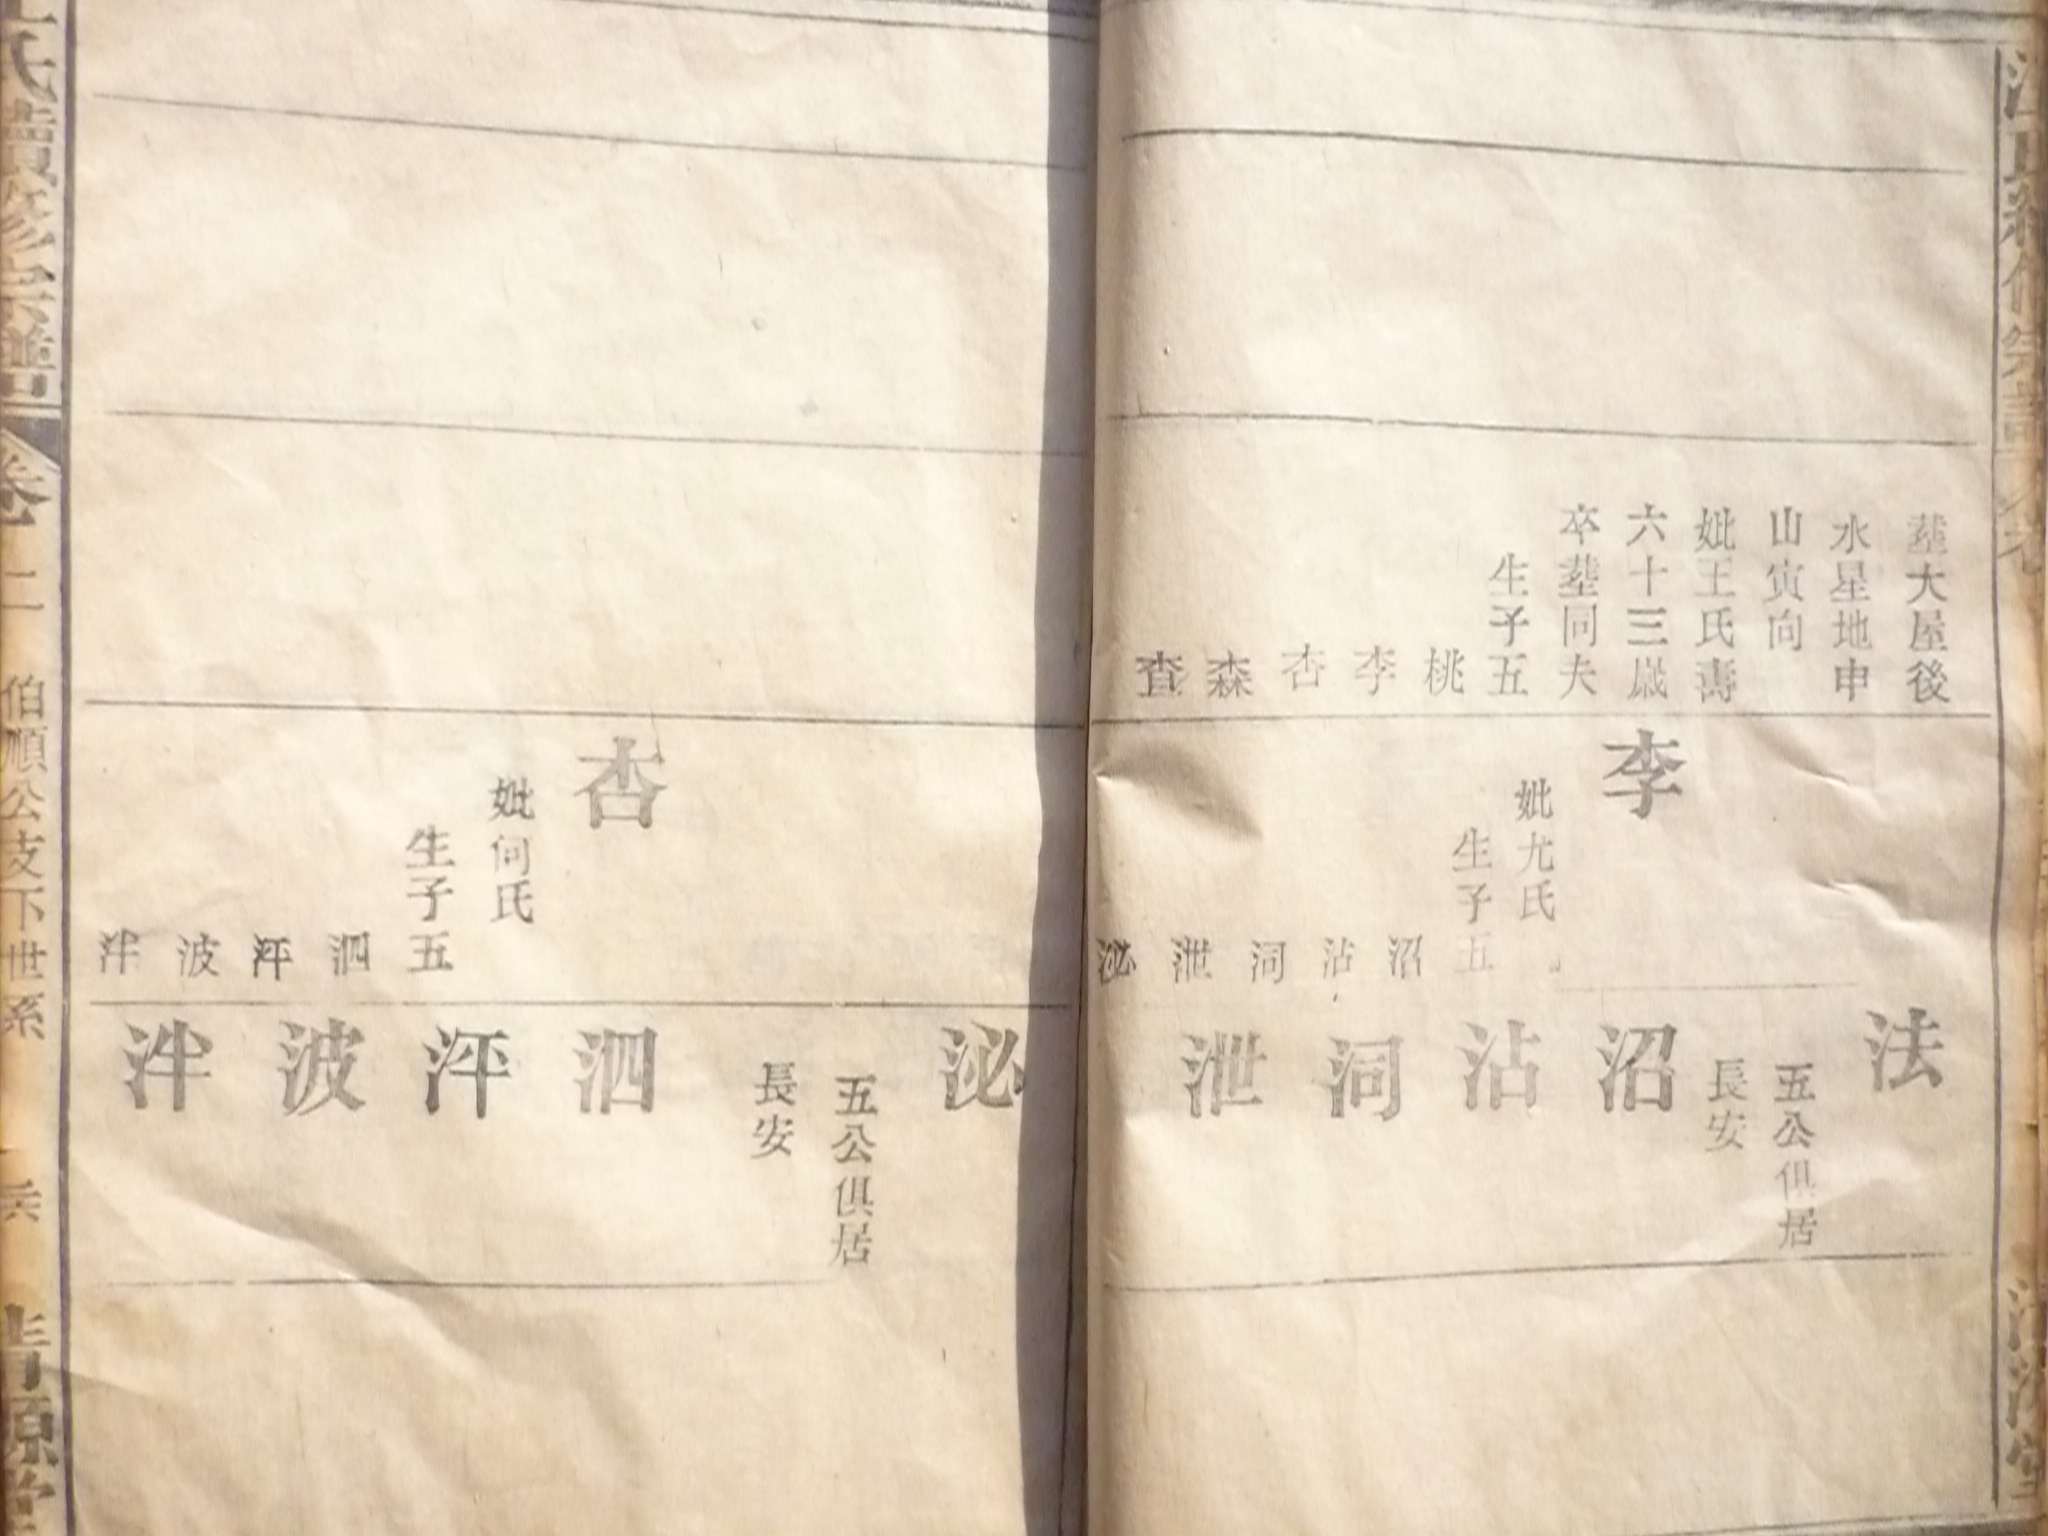 葬大屋後
水星地申
山寅向
妣王氏壽
六十三嵗
卒葬同夫
生子五
桃
李
杏
森
查
李
妣尤氏
生子五
沼
沾
泂
泄
泌
法
五公俱居
長安
沼
沾
泂
泄
泌
五公俱居
長安
杏
妣何氏
生子五
泗
泙
波
泮
泗
泙
波
泮
氏續修宗譜
卷二
伯順公支下世系
清源堂